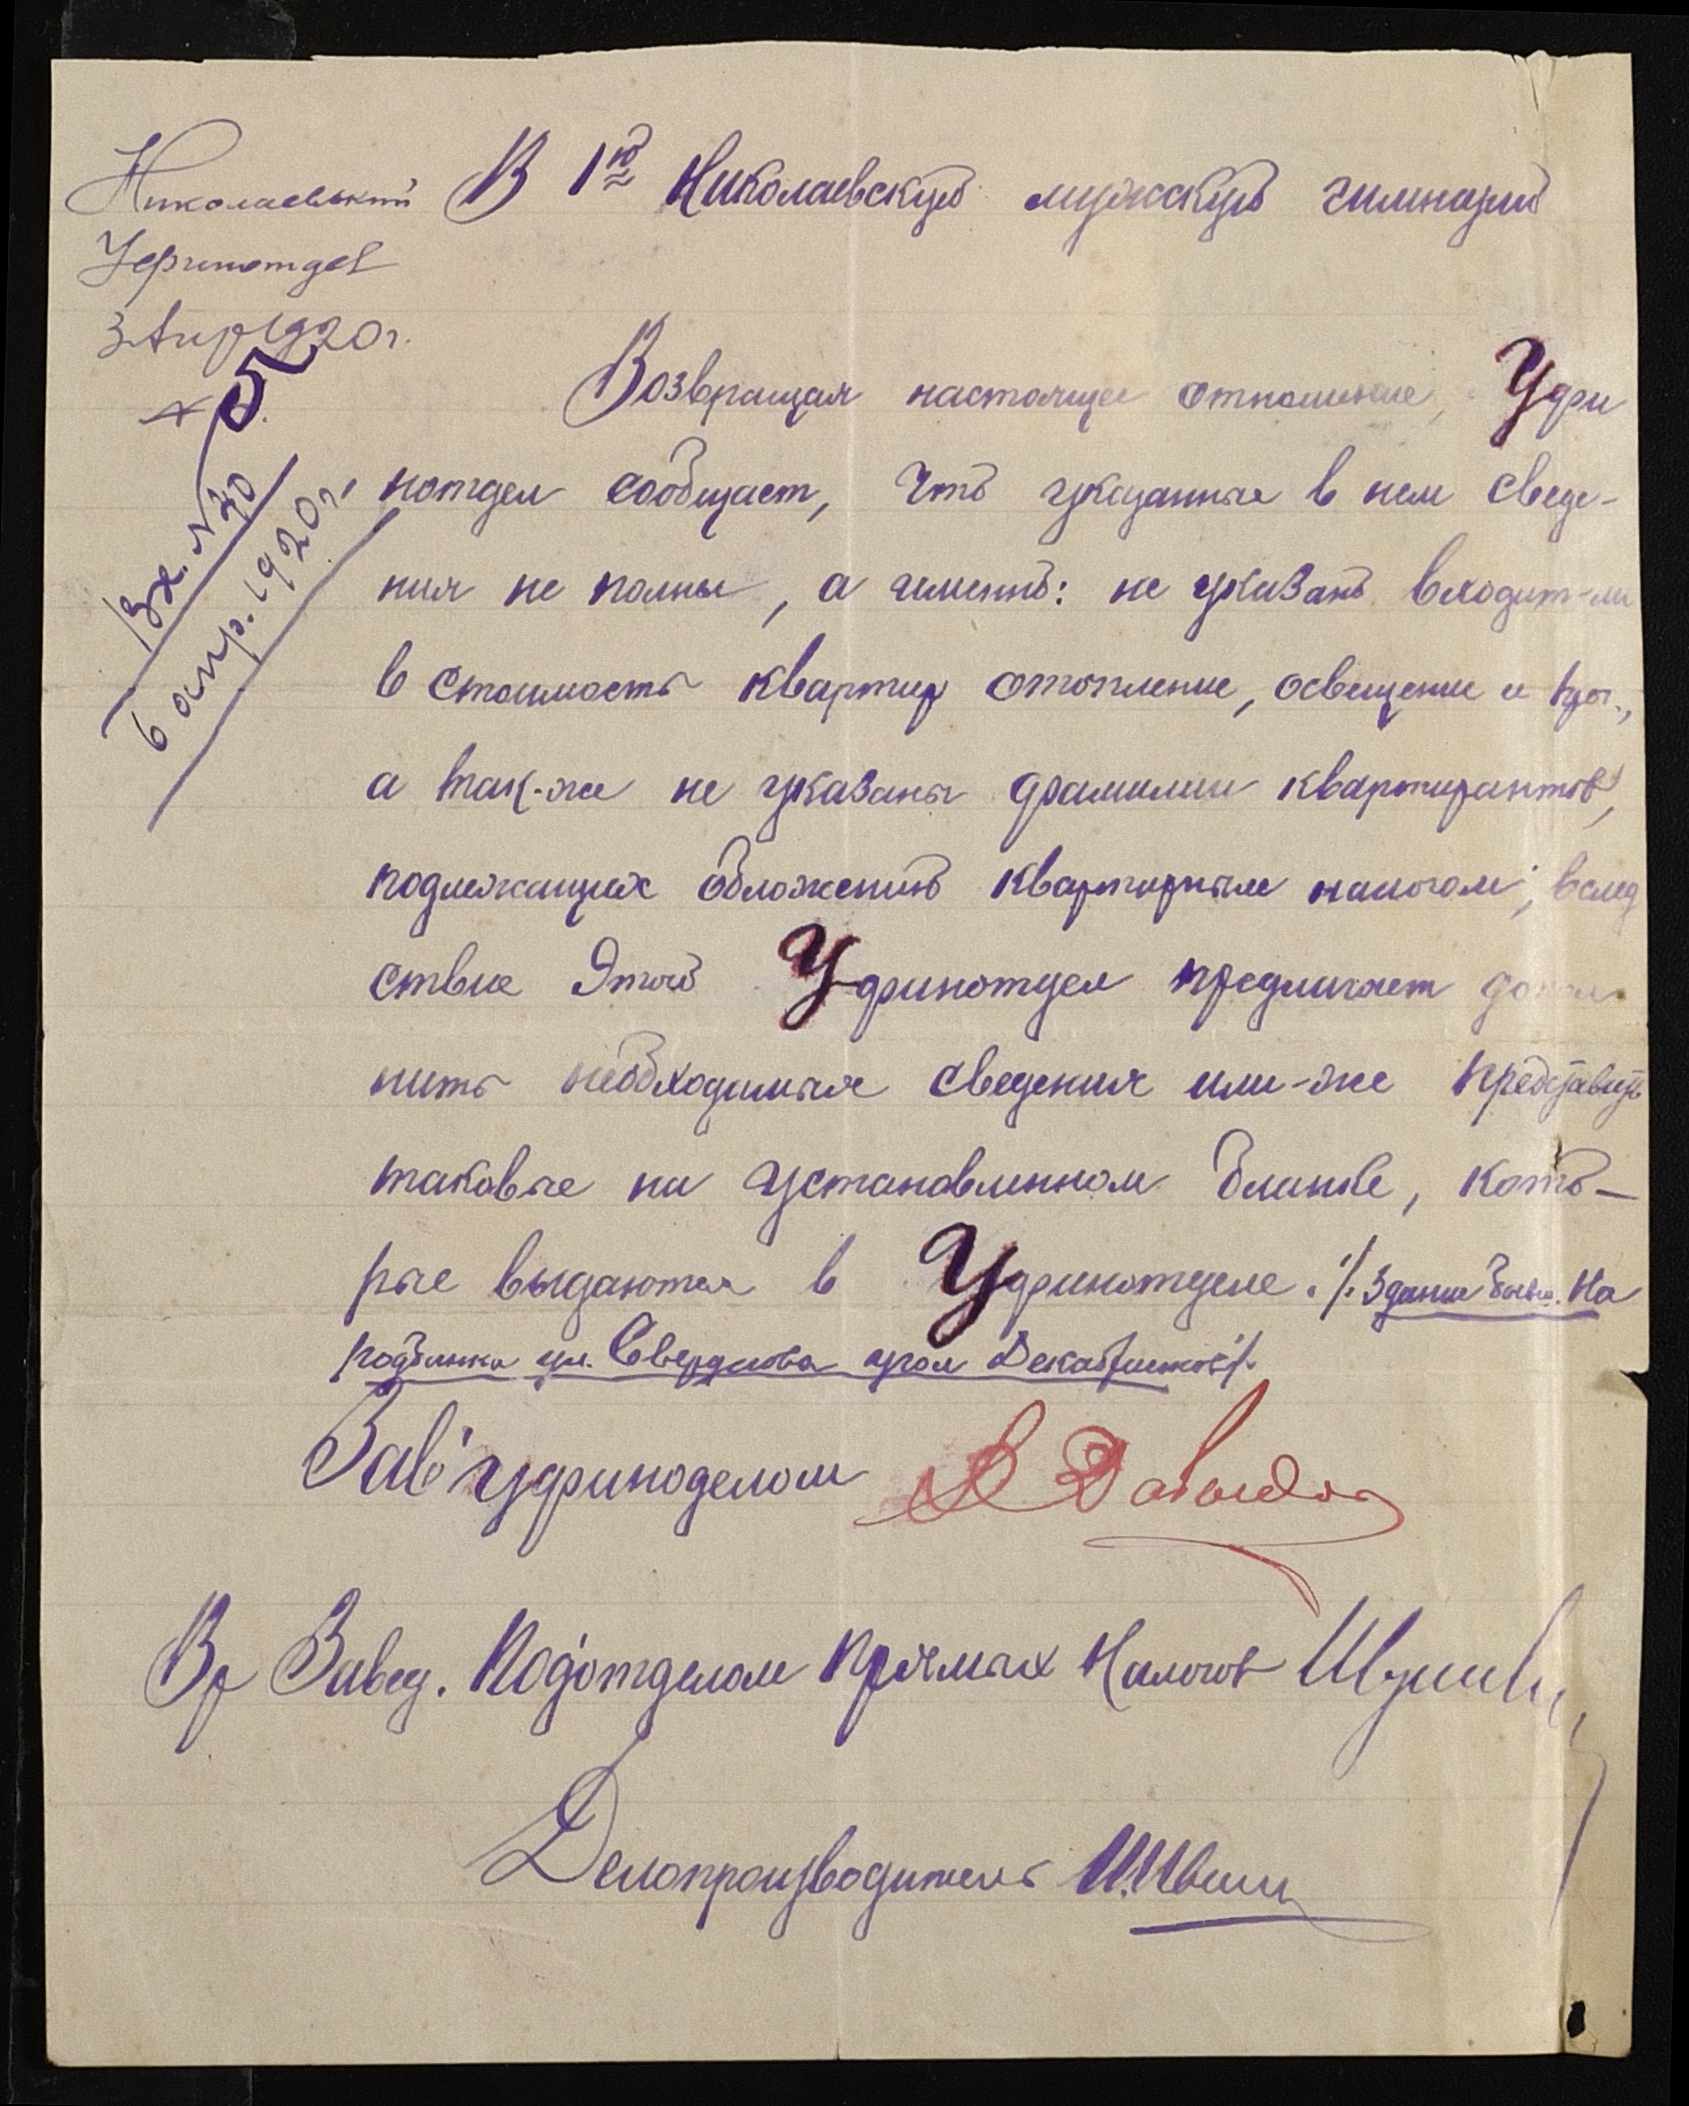 Николаевский
Уфинотдел
3 Апр 1920 г.
Вх. № 70
6 апр. 1920 г.
В 1ю Николаевскую мужскую гимназию
Возвращая настоящее отношение, Уфи
нотдел сообщает, что указанные в нем сведе-
ния не полны, а именно: не указано входит-ли
в стоимость квартир отопление, освещение и проч.,
а так-же не указаны фамилии квартирантов,
подлежащих обложению квартирным налогом, вслед
ствие этого Уфинотдел предлагает допол
нить необходимыя сведения или-же представить
таковые на установленном бланке, кото-
рые выдаются в Уфинотделе ./. Здание бывш. На
родбанка ул. Свердлова угол Декабристов ./.
Зав Уфиноделом В Давыдов
Вр Завед. Подотделом прямых налогов
Делопроизводитель И.